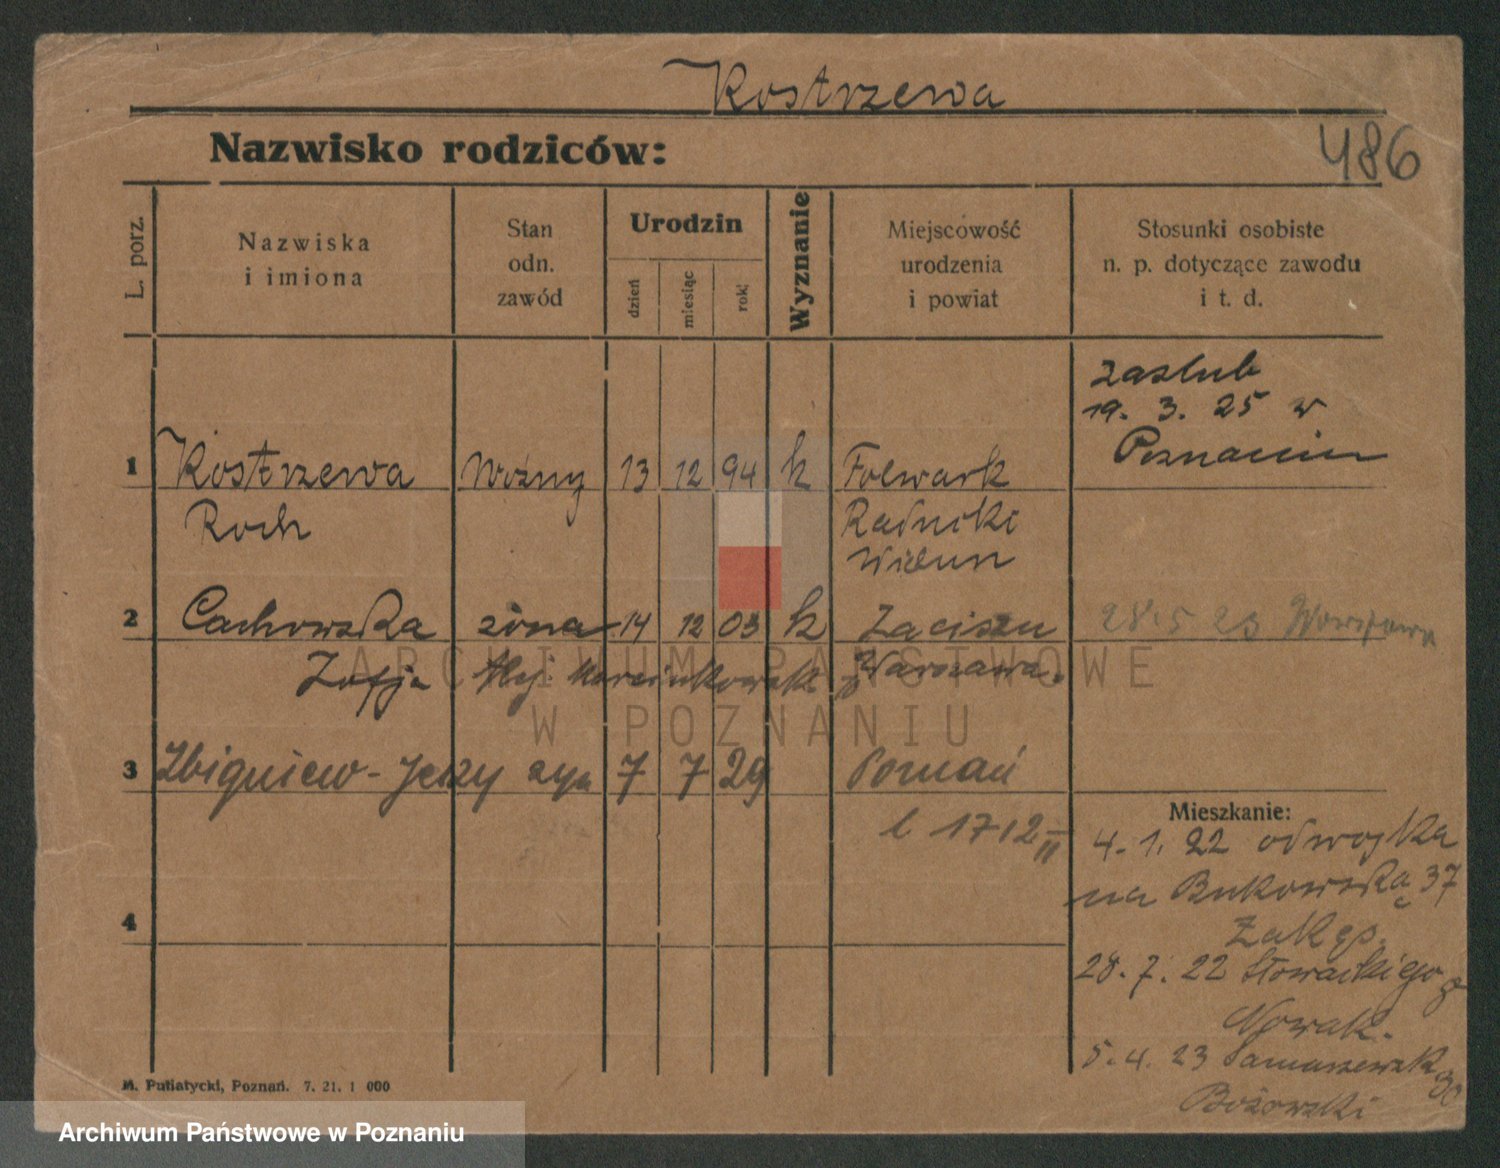 Kostrzewa
Nazwisko rodziców:
486
L. porz.
Nazwiska
i imiona
Stan
odn.
zawód
Urodzin
dzień
miesiąc
rok
Wyznanie
Miejscowość
urodzenia
i powiat
Stosunki osobiste
n. p. dotyczące zawodu
i t. d.
zaslub
19. 3. 25 w
Poznaniu
1 Kostrzewa Woźny 13 12 94 k Folwark
Roch Radniki
Wielun
2 Cachowska żona 14 12 03 k Zaciszu
28.5 23
Zofja Alej. Marcinkowsk Warszawa.
3 Zbigniew-Jerzy syn 7 7 29 Poznań
l 1712 II
4
Mieszkanie:
4. 1. 22 od wojska
na Bukowską 37
28. 7. 22 Słowackiego
Nowak.
5. 4. 23 Samuszewsk
Bożowski
M. Putiatycki, Poznań. 7. 21. 1 000
ARCHIWUM PAŃSTWOWE
W POZNANIU
Archiwum Państwowe w Poznaniu